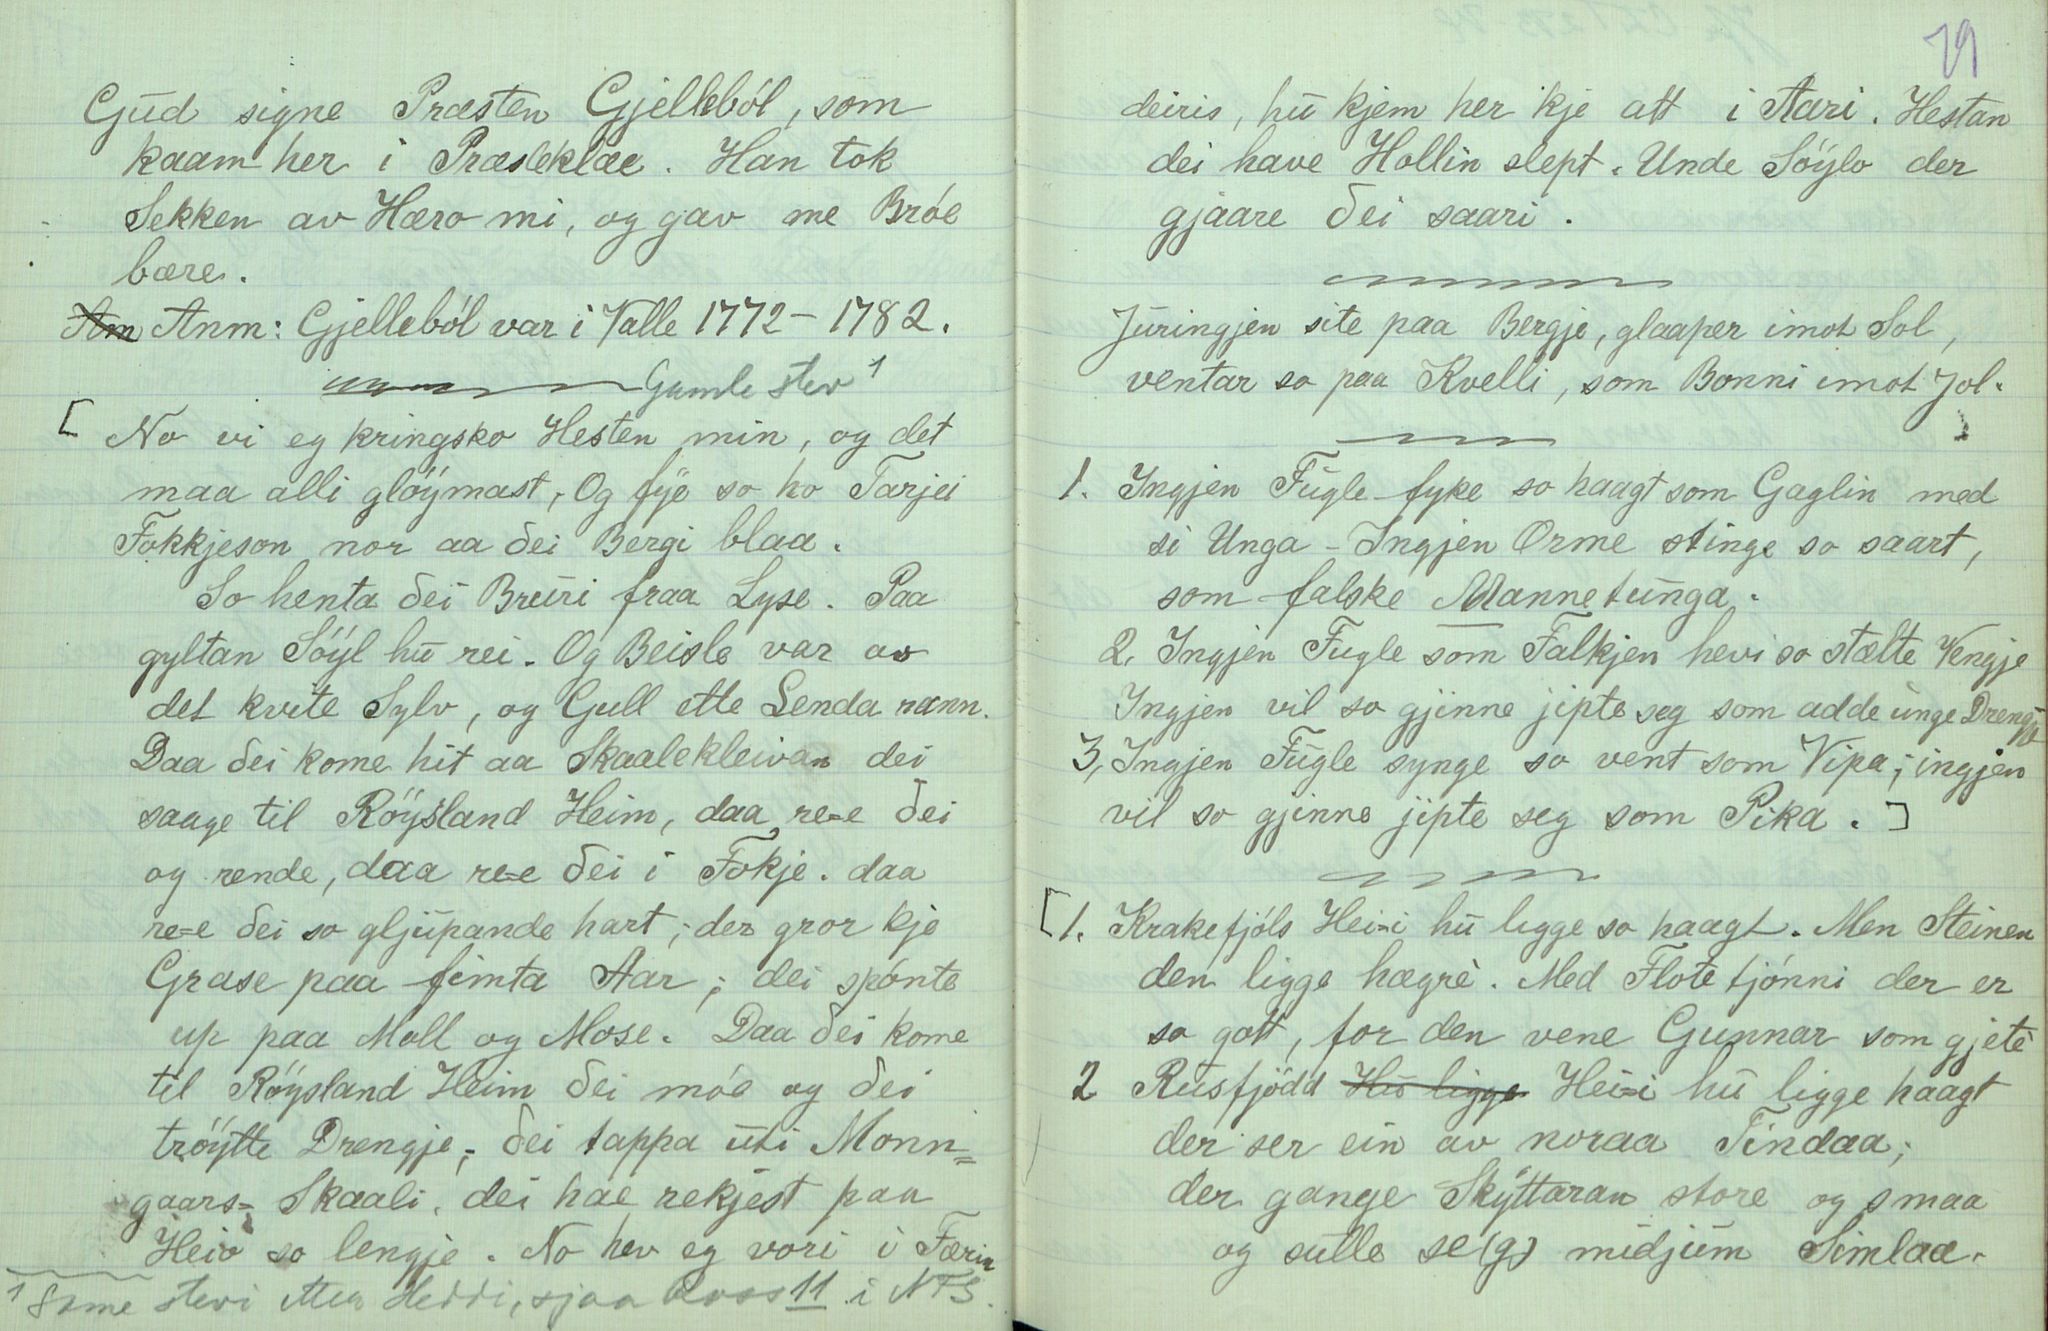 Gud signe Præsten Gjelleból, som
kaam her i Præsteklæe. Han tok
Sekken av Hæro mi, og gav me Bróe
bære.
Am Anm: Gjelleból var i Valle 1772 - 1782.
Gamle stev 1
[ No vi eg kringsko Hesten min, og det
maa alli glöymast, Og fye so ho Tarjei
Fokkjeson nor aa dei Bergi blaa.
So henta dei Bruri fraa Lyse. Paa
gyltan Söyl hu rei. Og Beisle var av
det kvite Sylv, og Gull ette Lenda rann.
Daa dei kome hit aa Skaalekleivan dei
saage til Röysland Heim, daa re=e dei
og rende, daa re=e dei i Fokje. daa
re=e dei so gljupande hart; der gror kje
Grase paa femta Aar; dei spónte
up paa Moll og Mose. Daa dei kome
til Röysland Heim dei móe og dei
tröytte Drengje; dei tappa uti Monn=
gaars= Skaali, dei hae rekjest paa
Heio so lengje. No hev eg vori i Færin
1 Same stevi etter Heddi, sjaa Ross 11 i NFS.
19
deiris, hu kjem her kje att i Aari. Hestan
dei have Hollin slept. Unde Söylo der
gjaare dei saari.
Juringjen site paa Bergje, glaaper imot Sol,
ventar so paa Kvelli, som Bonni imot Jol.
1. Ingjen Fugle fyke so haagt som Gaglin med
si Unga - Ingjen Orme stinge so saart,
som falske Mannetunga.
2. Ingjen Fugle som Falkjen hevi so stælte Vengje
Ingjen vil so gjinne jipte seg som adde unge Drengje
3, Ingjen Fugle synge so vent som Vipa; ingjen
vil so gjinne jipte seg som Pika. ]
[1. Krakefjóls Hei=i hu ligge so haagt. Men Steinen
den ligge hægrè. Med Flote tjónni der er
so gott, for den vene Gunnar som gjetè
2 Rusfjödd Hu ligge Hei=i hu ligge haagt
der ser ein av noraa Tindaa;
der gange Skyttaran store og smaa
og sulle se(g) midjum Simlaa.